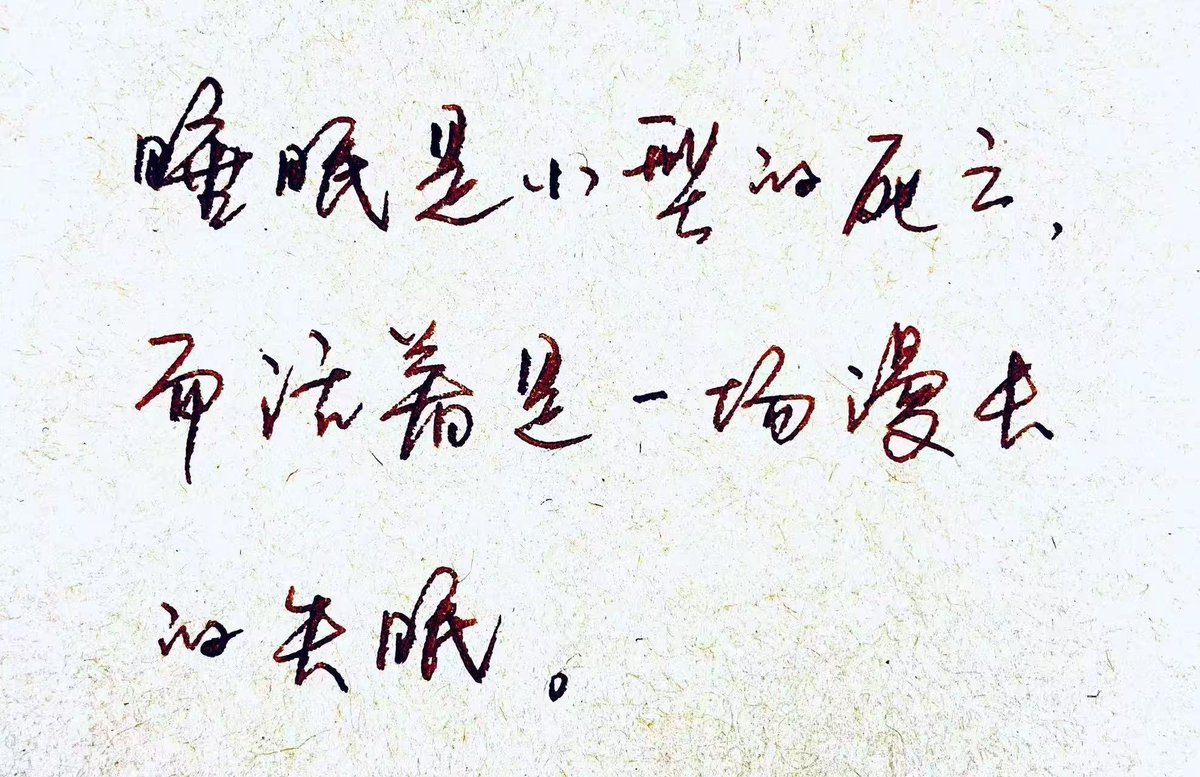 睡眠是小型的死亡，
而活着是一场漫长
的失眠。